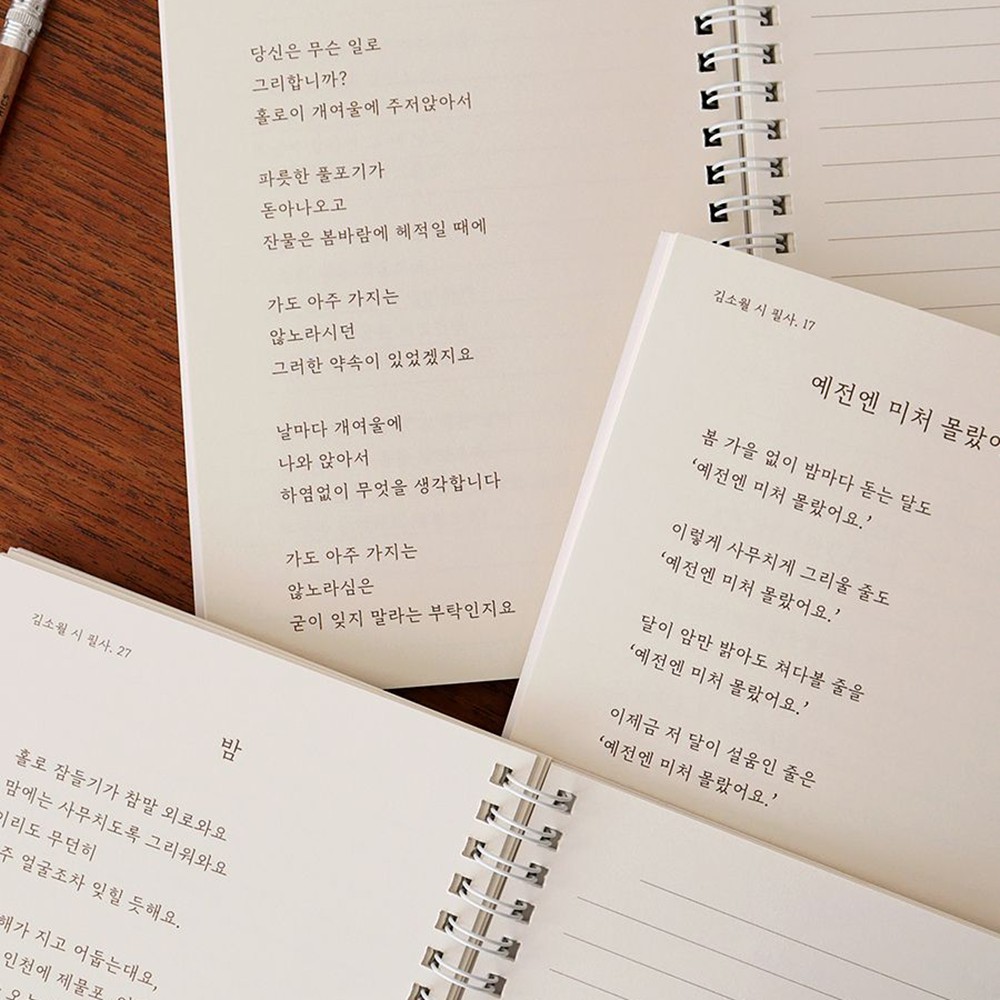 당신은 무슨 일로
그리합니까?
홀로이 개여울에 주저앉아서
파릇한 풀포기가
돋아나오고
잔물은 봄바람에 헤적일 때에
가도 아주 가지는
않노라시던
그러한 약속이 있었겠지요
날마다 개여울에
나와 앉아서
하염없이 무엇을 생각합니다
가도 아주 가지는
않노라심은
굳이 잊지 말라는 부탁인지요
김소월 시 필사. 17
예전엔 미처 몰랐어
봄 가을 없이 밤마다 돋는 달도
‘예전엔 미처 몰랐어요.’
이렇게 사무치게 그리울 줄도
‘예전엔 미처 몰랐어요.’
달이 암만 밝아도 쳐다볼 줄을
‘예전엔 미처 몰랐어요.’
이제금 저 달이 설움인 줄은
‘예전엔 미처 몰랐어요.’
김소월 시 필사. 27
밤
홀로 잠들기가 참말 외로와요
맘에는 사무치도록 그리워와요
이리도 무던히
주 얼굴조차 잊힐 듯해요.
해가 지고 어둡는대요,
인천에 제물포